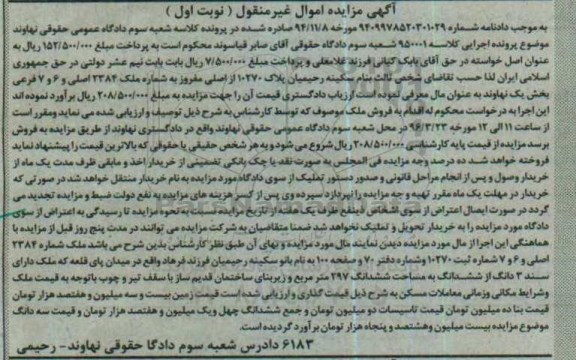 آگهی مزایده اموال غیرمنقول ( نوبت اول )
به موجب دادنامه شماره ۹۴۰۹۹۷۸۵۲۰۳۰۱۰۲۹ مورخه ۹۴/۱۱/۸ صادره شده در پرونده کلاسه شعبه سوم دادگاه عمومی حقوقی نهاوند
موضوع پرونده اجرایی کلاسه ۹۵۰۰۰۱ شعبه سوم دادگاه حقوقی آقای صابر قیاسوند محکوم است به پرداخت مبلغ ۱۵۲/۵۰۰/۰۰۰ ریال به
عنوان اصل خواسته در حق آقای بابک کیانی فرزند غلامعلی و پرداخت مبلغ ۷/۵۰۰/۰۰۰ ریال بابت بابت نیم عشر دولتی در حق جمهوری
اسلامی ایران لذا حسب تقاضای شخص ثالث بنام سکینه رحیمیان پلاک ۱۰۲۷۰ از اصلی مفروز به شماره ملک ۲۳۸۴ اصلی و ۶ و ۷ فرعی
بخش یک نهاوند به عنوان مال معرفی نموده است ارزیاب دادگستری قیمت آن را جهت مزایده به مبلغ ۲۰۸/۵۰۰/۰۰۰ ریال برآورد نموده اند
این اجرا به درخواست محکوم له اقدام به فروش ملک موصوف که توسط کارشناس به شرح ذیل توصیف و ارزیابی شده می نماید ومقرر است
از ساعت ۱۱ الی ۱۲ مورخه ۹۶/۳/۲۳ در محل شعبه سوم دادگاه عمومی حقوقی نهاوند واقع در دادگستری نهاوند از طریق مزایده به فروش
برسد مزایده از قیمت پایه کارشناسی ۲۰۸/۵۰۰/۰۰۰ ریال شروع می شود و به هر شخص حقیقی یا حقوقی که بالاترین قیمت را پیشنهاد نماید
فروخته خواهد شد ده درصد وجه مزایده فی المجلس به صورت نقد یا چک بانکی تضمینی از خریدار اخذ و مابقی ظرف مدت یک ماه از
خریدار وصول و پس از انجام مراحل قانونی و صدور دستور تملیک از سوی دادگاه مورد مزایده به نام خریدار منتقل خواهد شد در صورتی که
خریدار در مهلت یک ماه مقرر تهیه وجه مزایده را نپردازد سپرده وی پس از کسر هزینه های مزایده به نفع دولت ضبط و مزایده تجدید می
گردد در صورت ایصال اعتراض از سوی اشخاص ذینفع ظرف یک هفته از تاریخ مزایده نسبت به نحوه مزایده تا رسیدگی به اعتراض از سوی
دادگاه مورد مزایده را به خریدار تحویل و تملیک نخواهد شد ضمنا متقاضیان به شرکت مزایده می توانند در مدت پنج روز قبل از مزایده با
هماهنگی این اجرا از مال مورد مزایده دیدن نمایند مال مورد مزایده و بهای آن طبق نظر کارشناس بدین شرح می باشد ملک شماره ۲۳۸۴
اصلی و ۶ و ۷ شماره ثبت ۱۰۲۷۰ وشماره دفتر ۷۰ و صفحه ۱۰۰ به نام بانو سکینه رحیمیان فرزند فرهاد واقع در میدان پای قلعه که ملک دارای
سند ۳ دانگ از ششدانگ به مساحت ششدانگ ۲۹۷ متر مربع و زیربنای ساختمان قدیم ساز با سقف تیر و چوب باتوجه به قیمت ملک
وشرایط مکانی وزمانی معاملات مسکن به شرح ذیل قیمت گذاری و ارزیابی شده است قیمت زمین بیست و سه میلیون و هفتصد هزار تومان
قیمت بنا ده میلیون تومان قیمت تاسیسات دو میلیون تومان و جمع ششدانگ چهل ویک میلیون و هفتصد هزار تومان و قیمت سه دانگ
موضوع مزایده بیست میلیون وهشتصد و پنجاه هزار تومان برآورد گردیده است.
۶۱۸۳ دادرس شعبه سوم دادگا حقوقی نهاوند- رحیمی